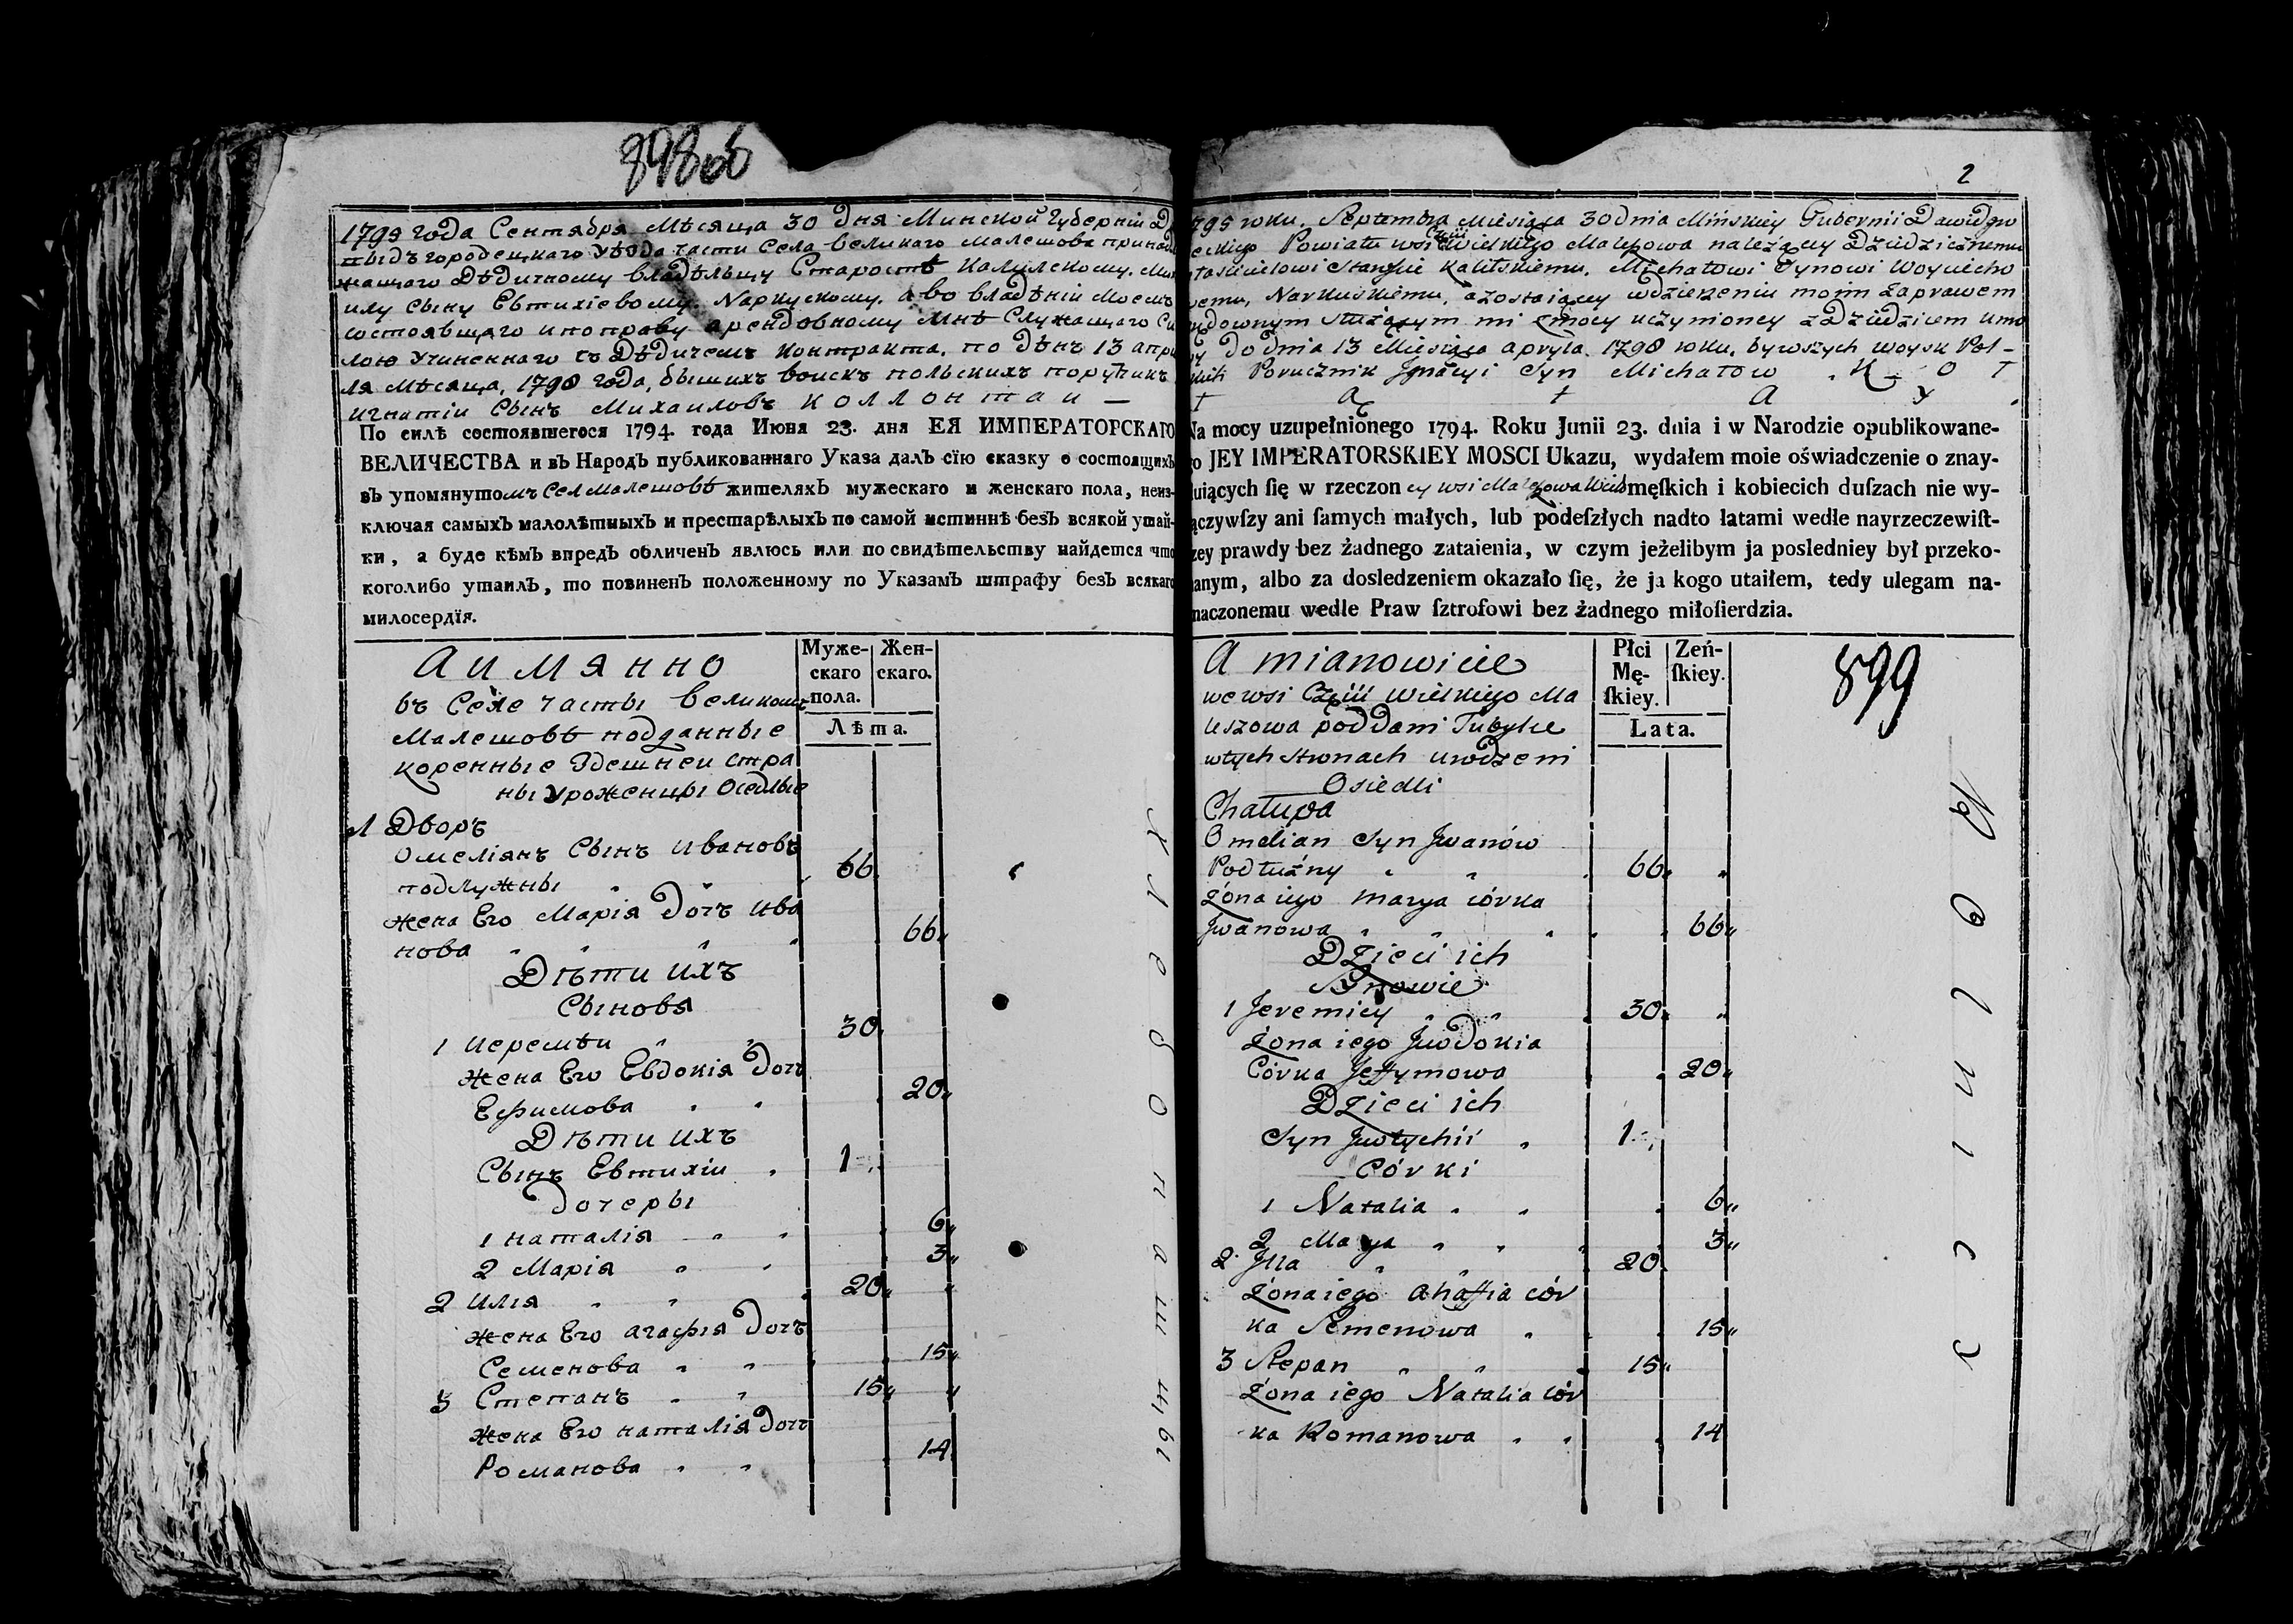 898об
1795 года Сентября Мѣсяца 30 дня Минской Губерніи
городецкаго Уѣзда части Села великаго малешова
Дѣдичному владѣльцу Старостѣ Калилскому.
илу сыну Евтихіевому. Наркускому. а во владѣніи моемъ
состоявшаго и по праву арендовному мнѣ служащаго
лою Учиненнаго съ Дѣдичемъ контракта. по дѣнъ 13 апрѣ
ля мѣсяца, 1798 года, бышихъ воискъ польскихъ поручикъ
игнатіи Сынъ Михаиловъ КОЛЛОНТАИ —
По силѣ состоявшегося 1794. года Июня 23. дня ЕЯ ИМПЕРАТОРСКАГО
ВЕЛИЧЕСТВА и въ Народъ публикованнаго Указа далъ сїю сказку о состоящихъ
въ упомянутомъ Сел Малешовѣ жителяхъ мужескаго и женскаго пола, неиз-
ключая самыхъ малолѣтныхъ и престарѣлыхъ по самой истиннѣ безъ всякой утай-
ки, а буде кѣмъ впредъ обличенъ явлюсь или по свидѣтельству найдется что
коголибо утаилъ, то повиненъ положенному по Указамъ штрафу безъ всякаго
милосердїя.
А имянно
Муже-
скаго
пола.
Жен-
скаго.
Лѣта.
въ Селе части великомъ
Малешовѣ подданные
коренные Здешнеи стра
ны Уроженцы Оседлые
1 Дворъ
Омеліянъ Сынъ Ивановъ
подлужны 66
жена Его Марія Дочъ Ива
нова 66
Дѣти ихъ
Сыновя
1 Иеремѣи 30
жена Его Евдокія Дочъ
Ефимова 20
Дѣти ихъ
Сынъ Евтихіи 1
дочеры
1 наталія 6
2 Марія 3
2 Илія 20
жена Его агафія Дочъ
Семенова 15
3 Степанъ 15
жена Его наталія Дочъ
Романова 14
2
795 roku. Septembra Miesiąca 30 dnia Mińskiey Gubernii Dawidgro
eckiego Powiatu wsi Części wielkiego Maleszowa należącey Dziedzicznemu
Kalilskiemu. Michałowi Synowi Woyciecho
wemu, Narkuskiemu, a zostaiącey w dzierżeniu moim za prawem
służącym mi z mocy uczynioney z Dziedzicem umo
wy do dnia 13 Miesiąca apryla. 1798 roku. bywszych woysk Pol-
Porucznik Jgnacyi Syn Michałow K O Ł
Ł Ą T A Y
Na mocy uzupełnionego 1794. Roku Junii 23. dnia i w Narodzie opublikowane-
go JEY IMPERATORSKIEY MOSCI Ukazu, wydałem moie oświadczenie o znay-
duiących ſię w rzeczoney wsi Maleszowa męſkich i kobiecich duſzach nie wy-
ączywſzy ani ſamych małych, lub podeſzłych nadto łatami wedle nayrzeczewiſt-
zey prawdy bez żadnego zataienia, w czym jeżelibym ja posledniey był przeko-
nanym, albo za dosledzeniem okazało ſię, że ja kogo utaiłem, tedy ulegam na-
naczonemu wedle Praw ſztrofowi bez żadnego miłoſierdzia.
A mianowicie
Płci
Mę-
ſkiey.
Zeń-
ſkiey.
Lata.
899
we wsi Części wielkiego Ma
leszowa poddani Tubylce
w tych stronach urodzeni
Osiedli
Chałupa
Omelian Syn Jwanów
Podłużny 66
Żona iego Marya córka
Jwanowa 66
Dzieci ich
Synowie
1 Jeremiey 30
Żona iego Jwdokia
Córka Jeffymowa 20
Dzieci ich
Syn Jwtychii 1
Córki
1 Natalia 6
2 Marya 3
2 Jlia 20
Żona iego Ahaffia cór
ka Semenowa 15
3 Stepan 15
Żona iego Natalia cór
ka Romanowa 14